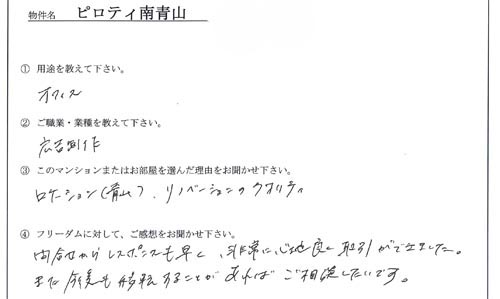 物件名 ピロティ南青山
① 用途を教えて下さい。
オフィス
② ご職業・業種を教えて下さい。
広告制作
③ このマンションまたはお部屋を選んだ理由をお聞かせ下さい。
ロケーション(青山)、リノベーションのクオリティ
④ フリーダムに対して、ご感想をお聞かせ下さい。
問合せからレスポンスも早く、非常に心地良い取引ができました。
また今後も移転することがあればご相談したいです。